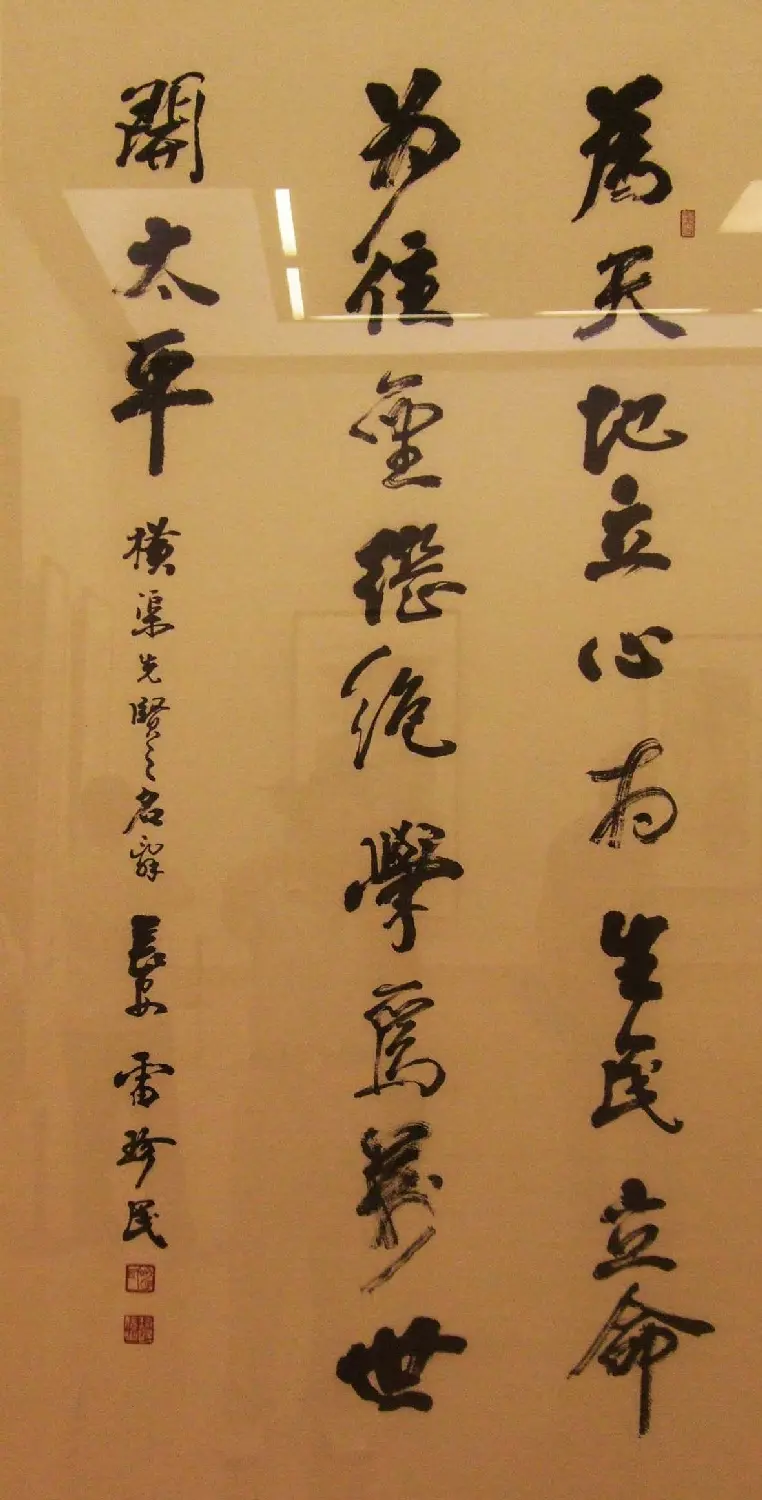 為天地立心為生民立命
為往聖繼絕學為萬世
開太平 橫渠先賢之名辭 長安 雷珍民